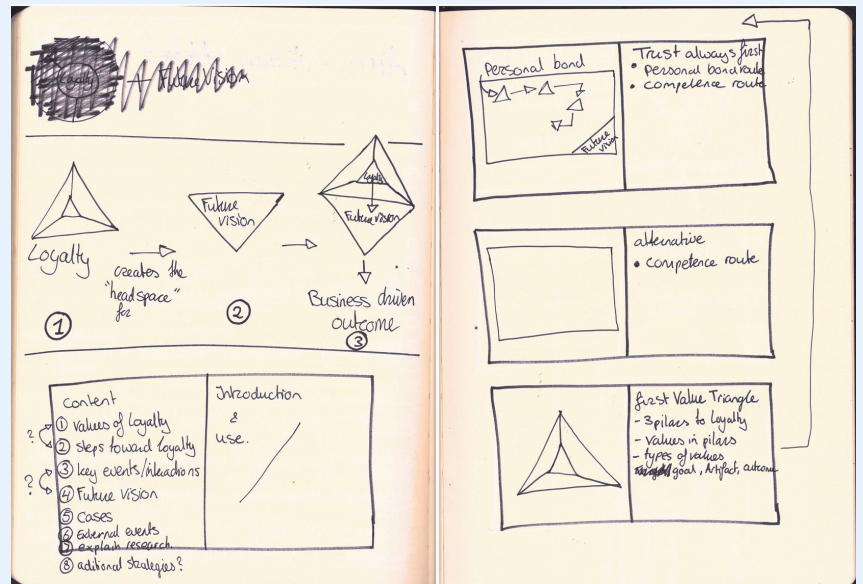 Loyalty
Future Vision
Loyalty
creates the
"headspace"
for
1
Future
vision
2
Loyalty
Future vision
Business driven
outcome
3
Content
1 values of Loyalty
2 steps toward loyalty
3 key events/interactions
4 Future Vision
5 Cases
6 External events
7 explain research.
8 aditional strategies?
?
?
Introduction
&
use.
Personal bond
Future
vision
Trust always first
• Personal bond route
• competence route
alternative
• competence route
first Value Triangle
- 3 pilars to loyalty
- values in pilars
- types of values
goal, Artifact, outcome